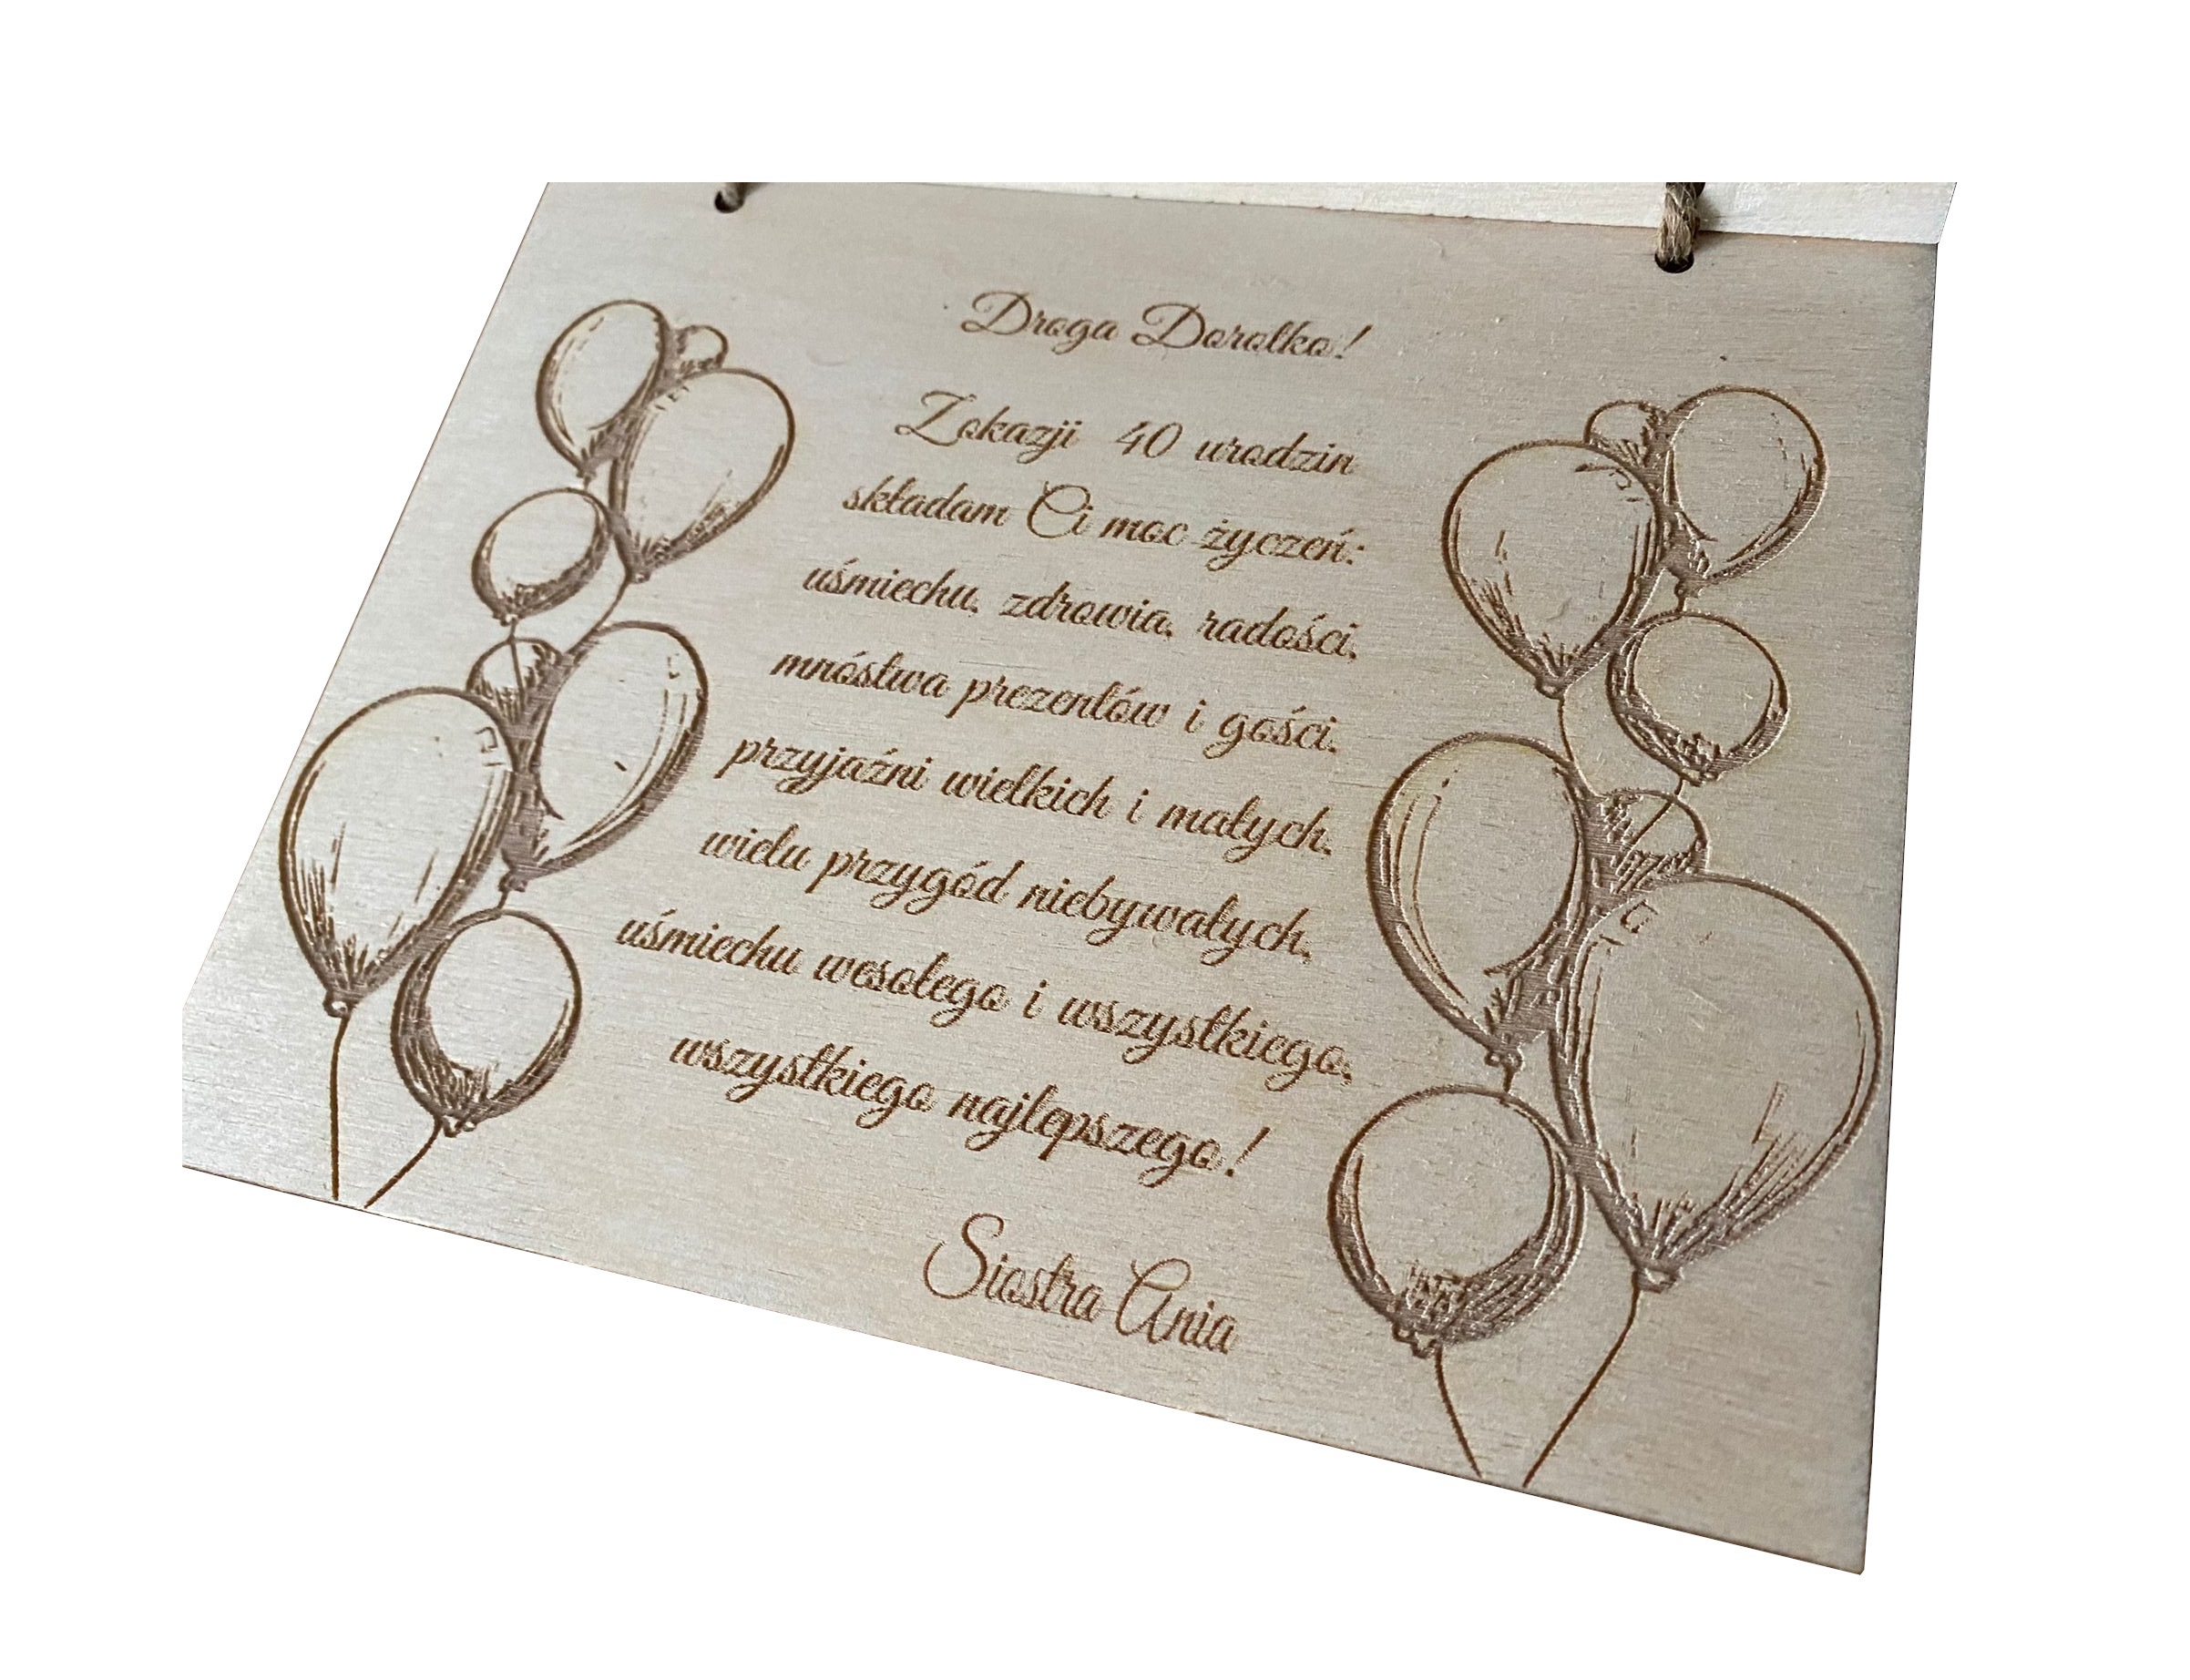 Droga Dorotko!
Z okazji 40 urodzin
składam Ci moc życzeń:
uśmiechu, zdrowia, radości,
mnóstwa prezentów i gości,
przyjaźni wielkich i małych,
wielu przygód niebywałych,
uśmiechu wesołego i wszystkiego,
wszystkiego najlepszego!
Siostra Ania